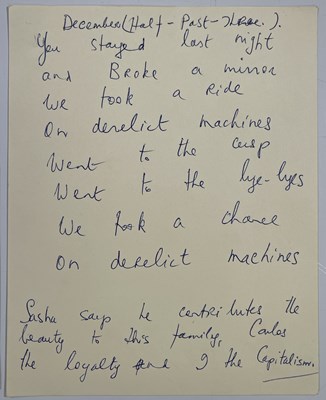 December (Half-Past-Three.).
You stayed last night
and Broke a mirror
We took a Ride
On derelict machines
Went to the cusp
Went to the bye-byes
We took a chance
On derelict machines
Sasha says he contributes the
beauty to this family, Carlos
the loyalty and I the Capitalism.